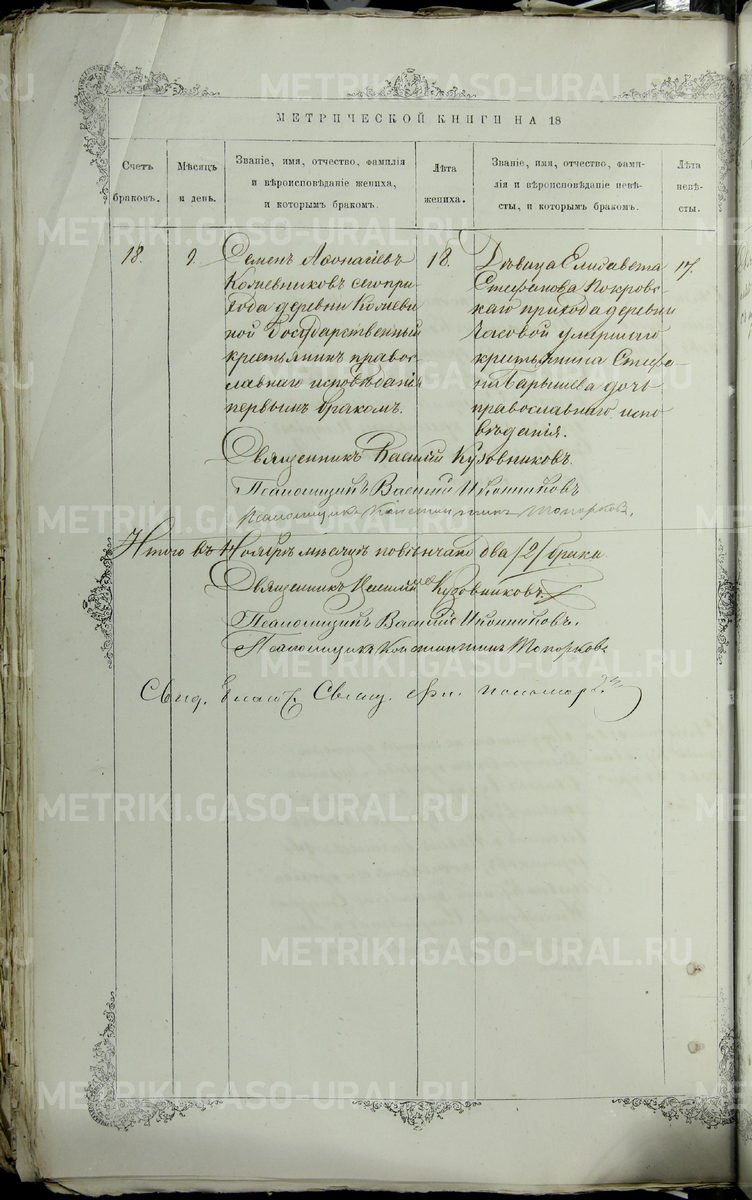 МЕТРИЧЕСКОЙ КНИГИ НА 18
Счетъ
браковъ.
Мѣсяцъ
и день.
Званіе, имя, отчество, фамилія
и вѣроисповѣданіе жениха,
и которымъ бракомъ.
Лѣта
жениха.
Званіе, имя, отчество, фами-
лія и вѣроисповѣданіе невѣ-
сты, и которымъ бракомъ.
Лѣта
невѣ-
сты.
18.
9.
Семенъ Аѳонасіевъ
Кожевниковъ сего при-
хода деревни Кожеви
ной Государственный
крестьянинъ право-
славнаго исповѣданія
первымъ бракомъ.
18.
Дѣвица Елисавета
Стефанова Покров-
скаго прихода деревни
Часовой умершаго
крестьянина Стефа-
на Барышева дочь
православнаго испо
вѣданія.
17.
Священникъ Василій Кузовниковъ.
Псаломщикъ Василій Иконниковъ
Псаломщикъ Константинъ Топорковъ.
Итого въ Ноябрѣ мѣсяцѣ повѣнчано два /2/ брака.
Священникъ Василій Кузовниковъ
Псаломщикъ Василій Иконниковъ.
Псаломщикъ Константинъ Топорковъ
METRIKI.GASO-URAL.RU